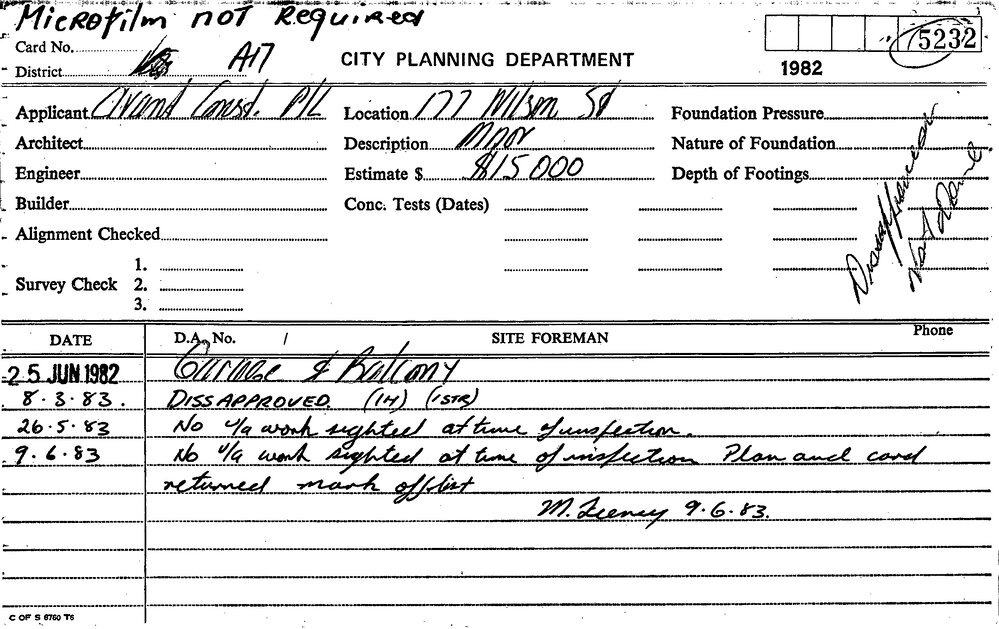 Microfilm not Required
Card No.
District A17
CITY PLANNING DEPARTMENT
5232
1982
Applicant Const. P/L
Location 177 Wilson St
Foundation Pressure
Architect
Description
Nature of Foundation
Engineer
Estimate $ $15000
Depth of Footings
Builder
Conc. Tests (Dates)
Alignment Checked
Survey Check
1.
2.
3.
Disapproved
Not Done
DATE
D.A. No. /
SITE FOREMAN
Phone
25 JUN 1982 Garage & Balcony
8.3.83. DISSAPPROVED. (1H) (1STR)
26.5.83 No u/a work sighted at time of inspection.
9.6.83 No u/a work sighted at time of inspection Plan and card
returned mark off list
M. Feeney 9.6.83.
C OF S 6760 T6